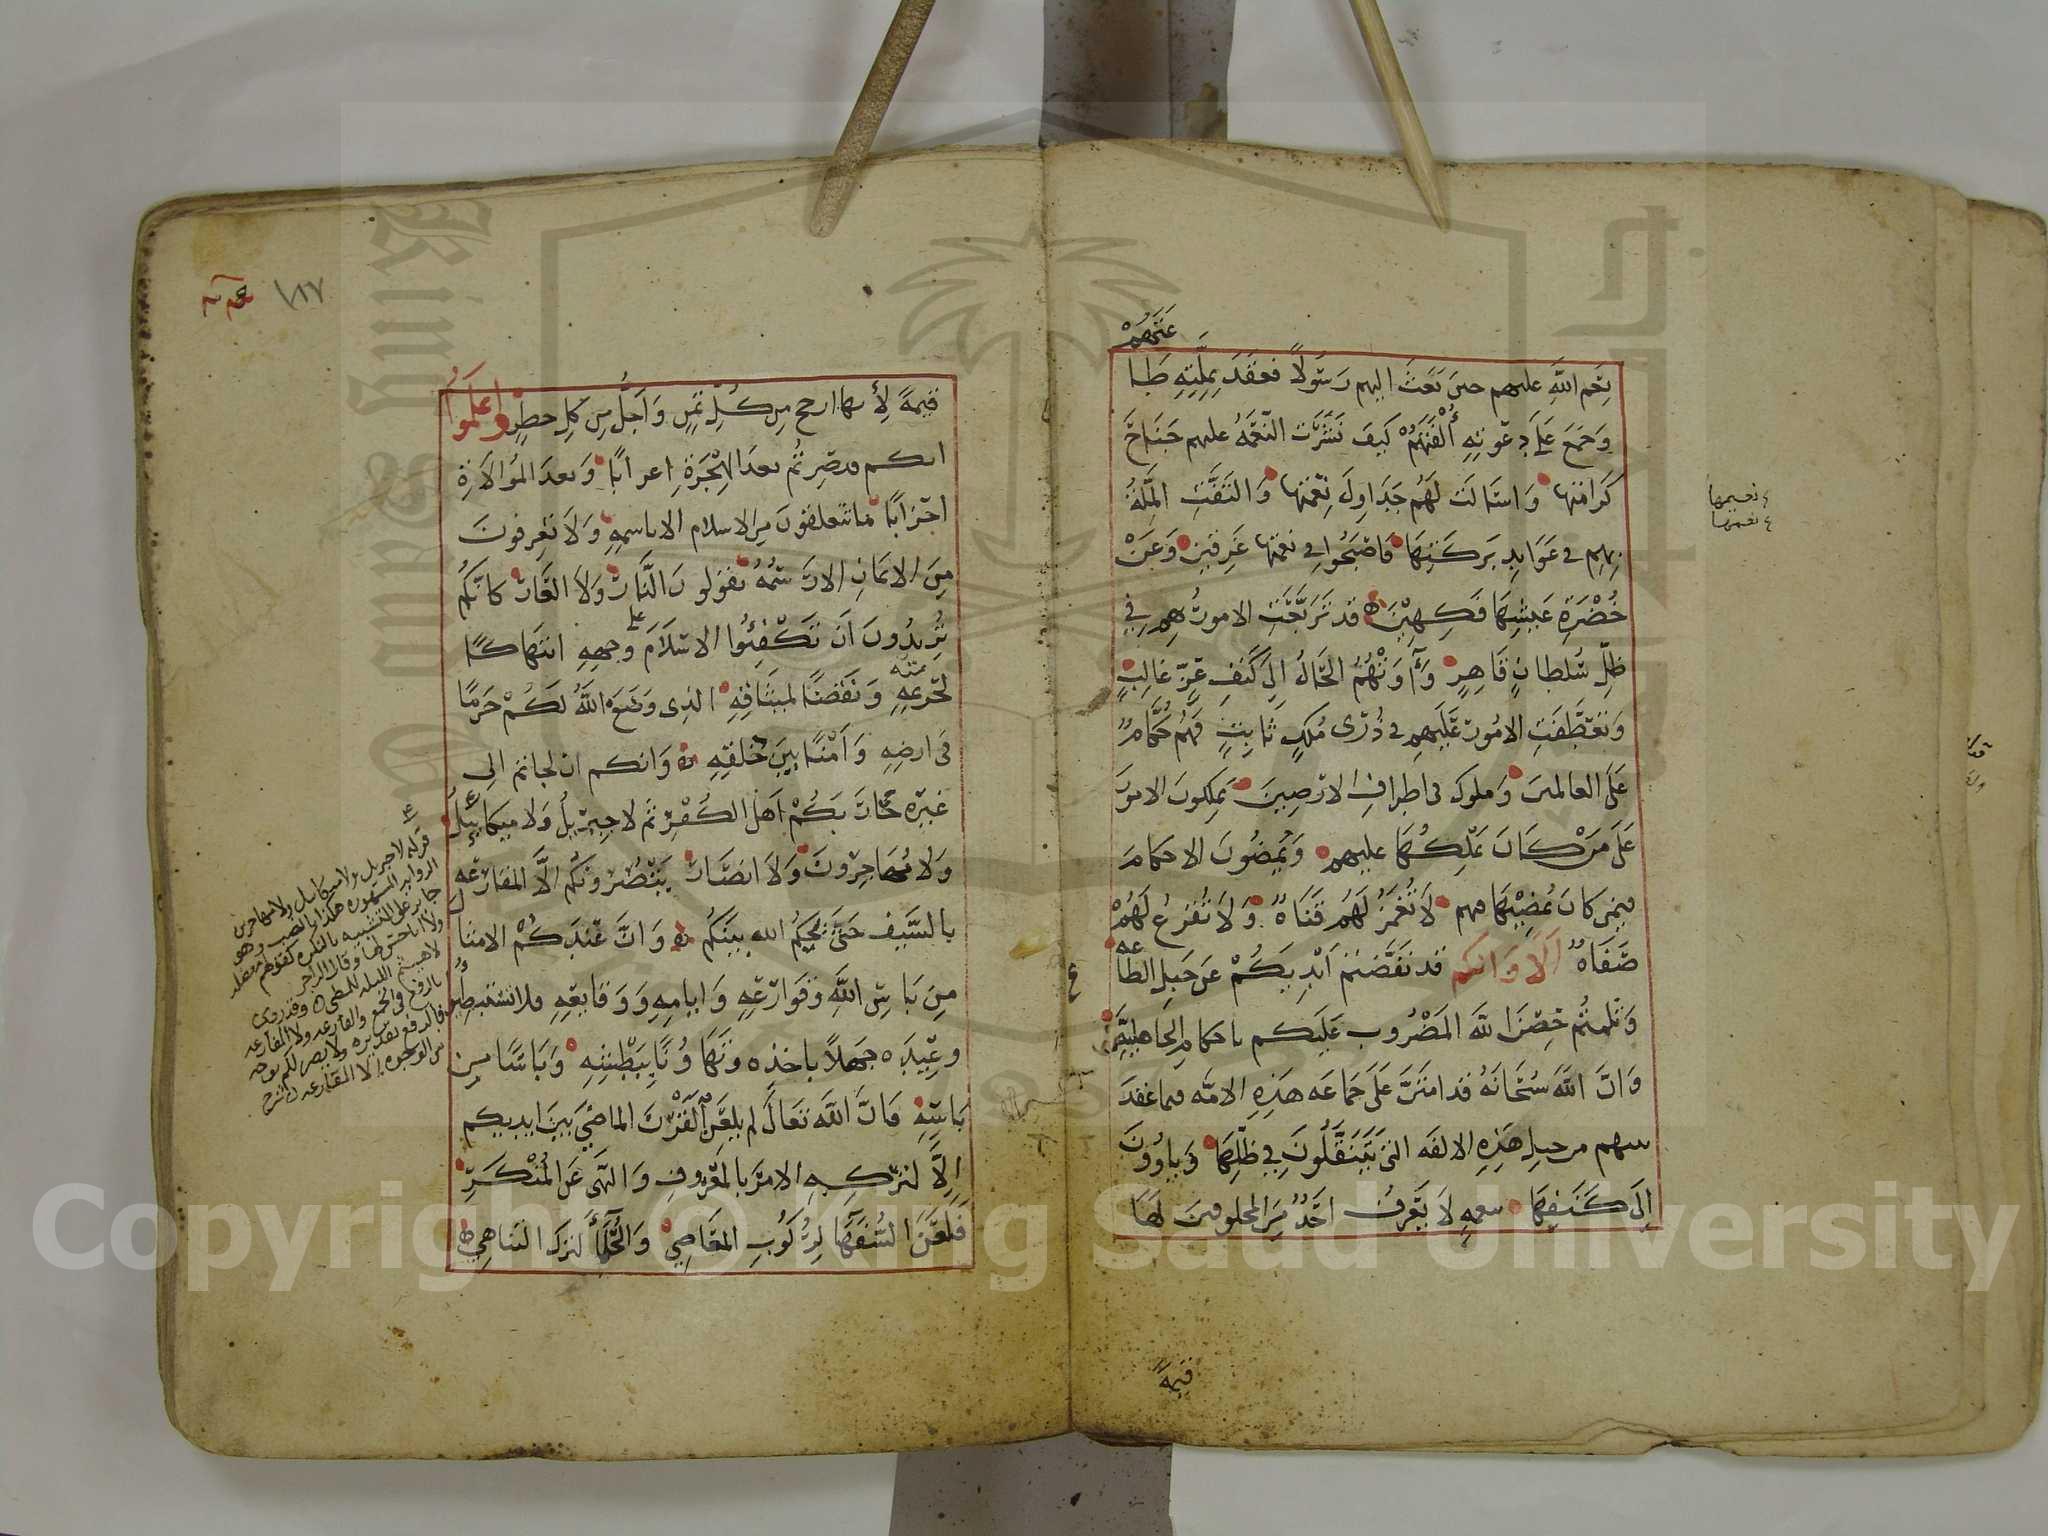 نِعَمِ اللهِ عليهم حين بَعَثَ اليهم رَسُولاً فعَقَدَ بِمِلَّتِهِ طَا
عَتَهُمْ
وَجَمَعَ عَلَى دَعْوَتِهِ أُلْفَتَهُمْ كَيفَ نَشَرَتِ النِّعْمَةُ عليهم جَنَاحَ
كَرامَتِها وَاَسَالَتْ لَهُم جَدَاوِلَ نِعْمَتِها وَالتَفَّتِ المِلَّةُ
بِهِم في عَوَايِدِ بَرَكَتِهَا فَاصْبَحُوا في نعمتها غَرِقِينَ وَعَنْ
خُضْرَةِ عَيْشِهَا فَكِهِيْنَ قد تَرَبَّعَتِ الامورُ بِهِم فِي
ظِلِّ سُلطانٍ قَاهِرٍ وَآوَتْهُمُ الحَالُ اِلَى كَنَفِ عِزٍّ غالِبٍ
وَتَعَطَّفَتِ الامُورُ عَلَيهِم في ذُرَى مُلكٍ ثَابِتٍ فَهُم حُكَّامٌ
عَلَى العالمين وَملوك في اطرافِ الارَضِينَ يَملِكونَ الامورَ
عَلَى مَنْ كَانَ يَمْلِكُهَا عليهم وَيُمضُونَ الاحكامَ
فيمن كانَ يُمْضِيْهَا فيهم لَا تُغمَزُ لَهُم قَنَاةٌ وَلَا تُقرَعُ لَهُمْ
صَفَاةٌ اَلَا وَانكم قد نَفَضْتُمْ اَيْدِيَكُمْ عن حَبلِ الطَّاعه
وَثَلَمتُم حِصْنَ اللهِ المَضْرُوبَ عَلَيكم باحكامِ الجاهِليَّةِ
وَانَّ اللهَ سُبحَانَهُ قد امتَنَّ عَلَى جَماعَه هَذِهِ الامّه فيما عَقدَ
بينهم من حبلِ هَذِهِ الالفَه التي يَتَنَقَّلُونَ فِي ظِلِّهَا وَياوُونَ
اِلَى كَنَفِهَا بنعمهٍ لَا يَعْرِفُ احَدٌ مِنَ المخلوقين لَهَا
قيمَةً
ع نعيمها
ع نعمها
١٨٧
قيمَةً لِأنها ارجح مِن كُلِّ ثَمَنٍ وَاَجَلُّ مِن كلِ خطرٍ واعلَمُوا
انكم قد صِرتُم بعدَ الهِجْرَةِ اعرابًا وَبعدَ المُوالاةِ
احْزَابًا مَا تتعلقونَ مِن الاسلام الا باسمِهِ وَلَا تَعرِفونَ
مِنَ الايمَانِ الا رَسْمَهُ تقولونَ النَّارَ وَلَا العَارَ كانَّكم
تُرِيدُونَ اَنْ تَكْفِئُوا الاسْلَامَ على وجههِ انتهاكًا
لحَرِيمِهِ وَنَقْضًا لميثاقِهِ الذي وَضَعَهُ اللهُ لَكُمْ حَرَمًا
في ارضِهِ وَاَمْنًا بَينَ خَلقِهِ وَانكم ان لجاتم الى
غيرِه حَارَبَكُمْ اَهلُ الكُفْرِ ثمَ لا جِبرَئيلُ وَلا ميكايِيلُ
وَلَا مُهَاجِرُونَ وَلَا انصَارٌ يَنْصُرُونَكُم الَّا المقارَعَه
بالسَّيفِ حَتَّى يَحكُمَ الله بَيْنَكُم وَانَّ عِندَكُمُ الامثا
مِن بَاسِ اللهِ وَقَوَارِعِهِ وَايامِهِ وَوَقَايِعِهِ فلا تستَبطِئُوا
وعِيدَه جَهلاً باخذِه وَتَهَاوُنًا بِبَطْشِهِ وَيَاْسًا مِن
بَاسِهِ فَانَّ اللهَ تعَالَى لم يلعَنِ القَرْنَ الماضِيَ بَينَ ايديكم
اِلَّا لتركِهِمِ الامرَ بالمَعْرُوفِ وَالنَّهيَ عَنِ المُنْكَرِ
فَلَعَنَ السُّفَهَآءَ لِرُكُوبِ المَعَاصِي وَالحُلَمَآءَ لتركِ التناهي
قوله لا جبريل ولا ميكاييل ولا مهاجرين
الروايه المشهوره هكذا بالنصب وهو
جايز على التشبيه بالنكره كقولهم معضله
ولا ابا حسن لها وقال الراجز
لا هيثم الليله للمطي وقد روي
بالرفع في الجميع
Copyright © King Saud University